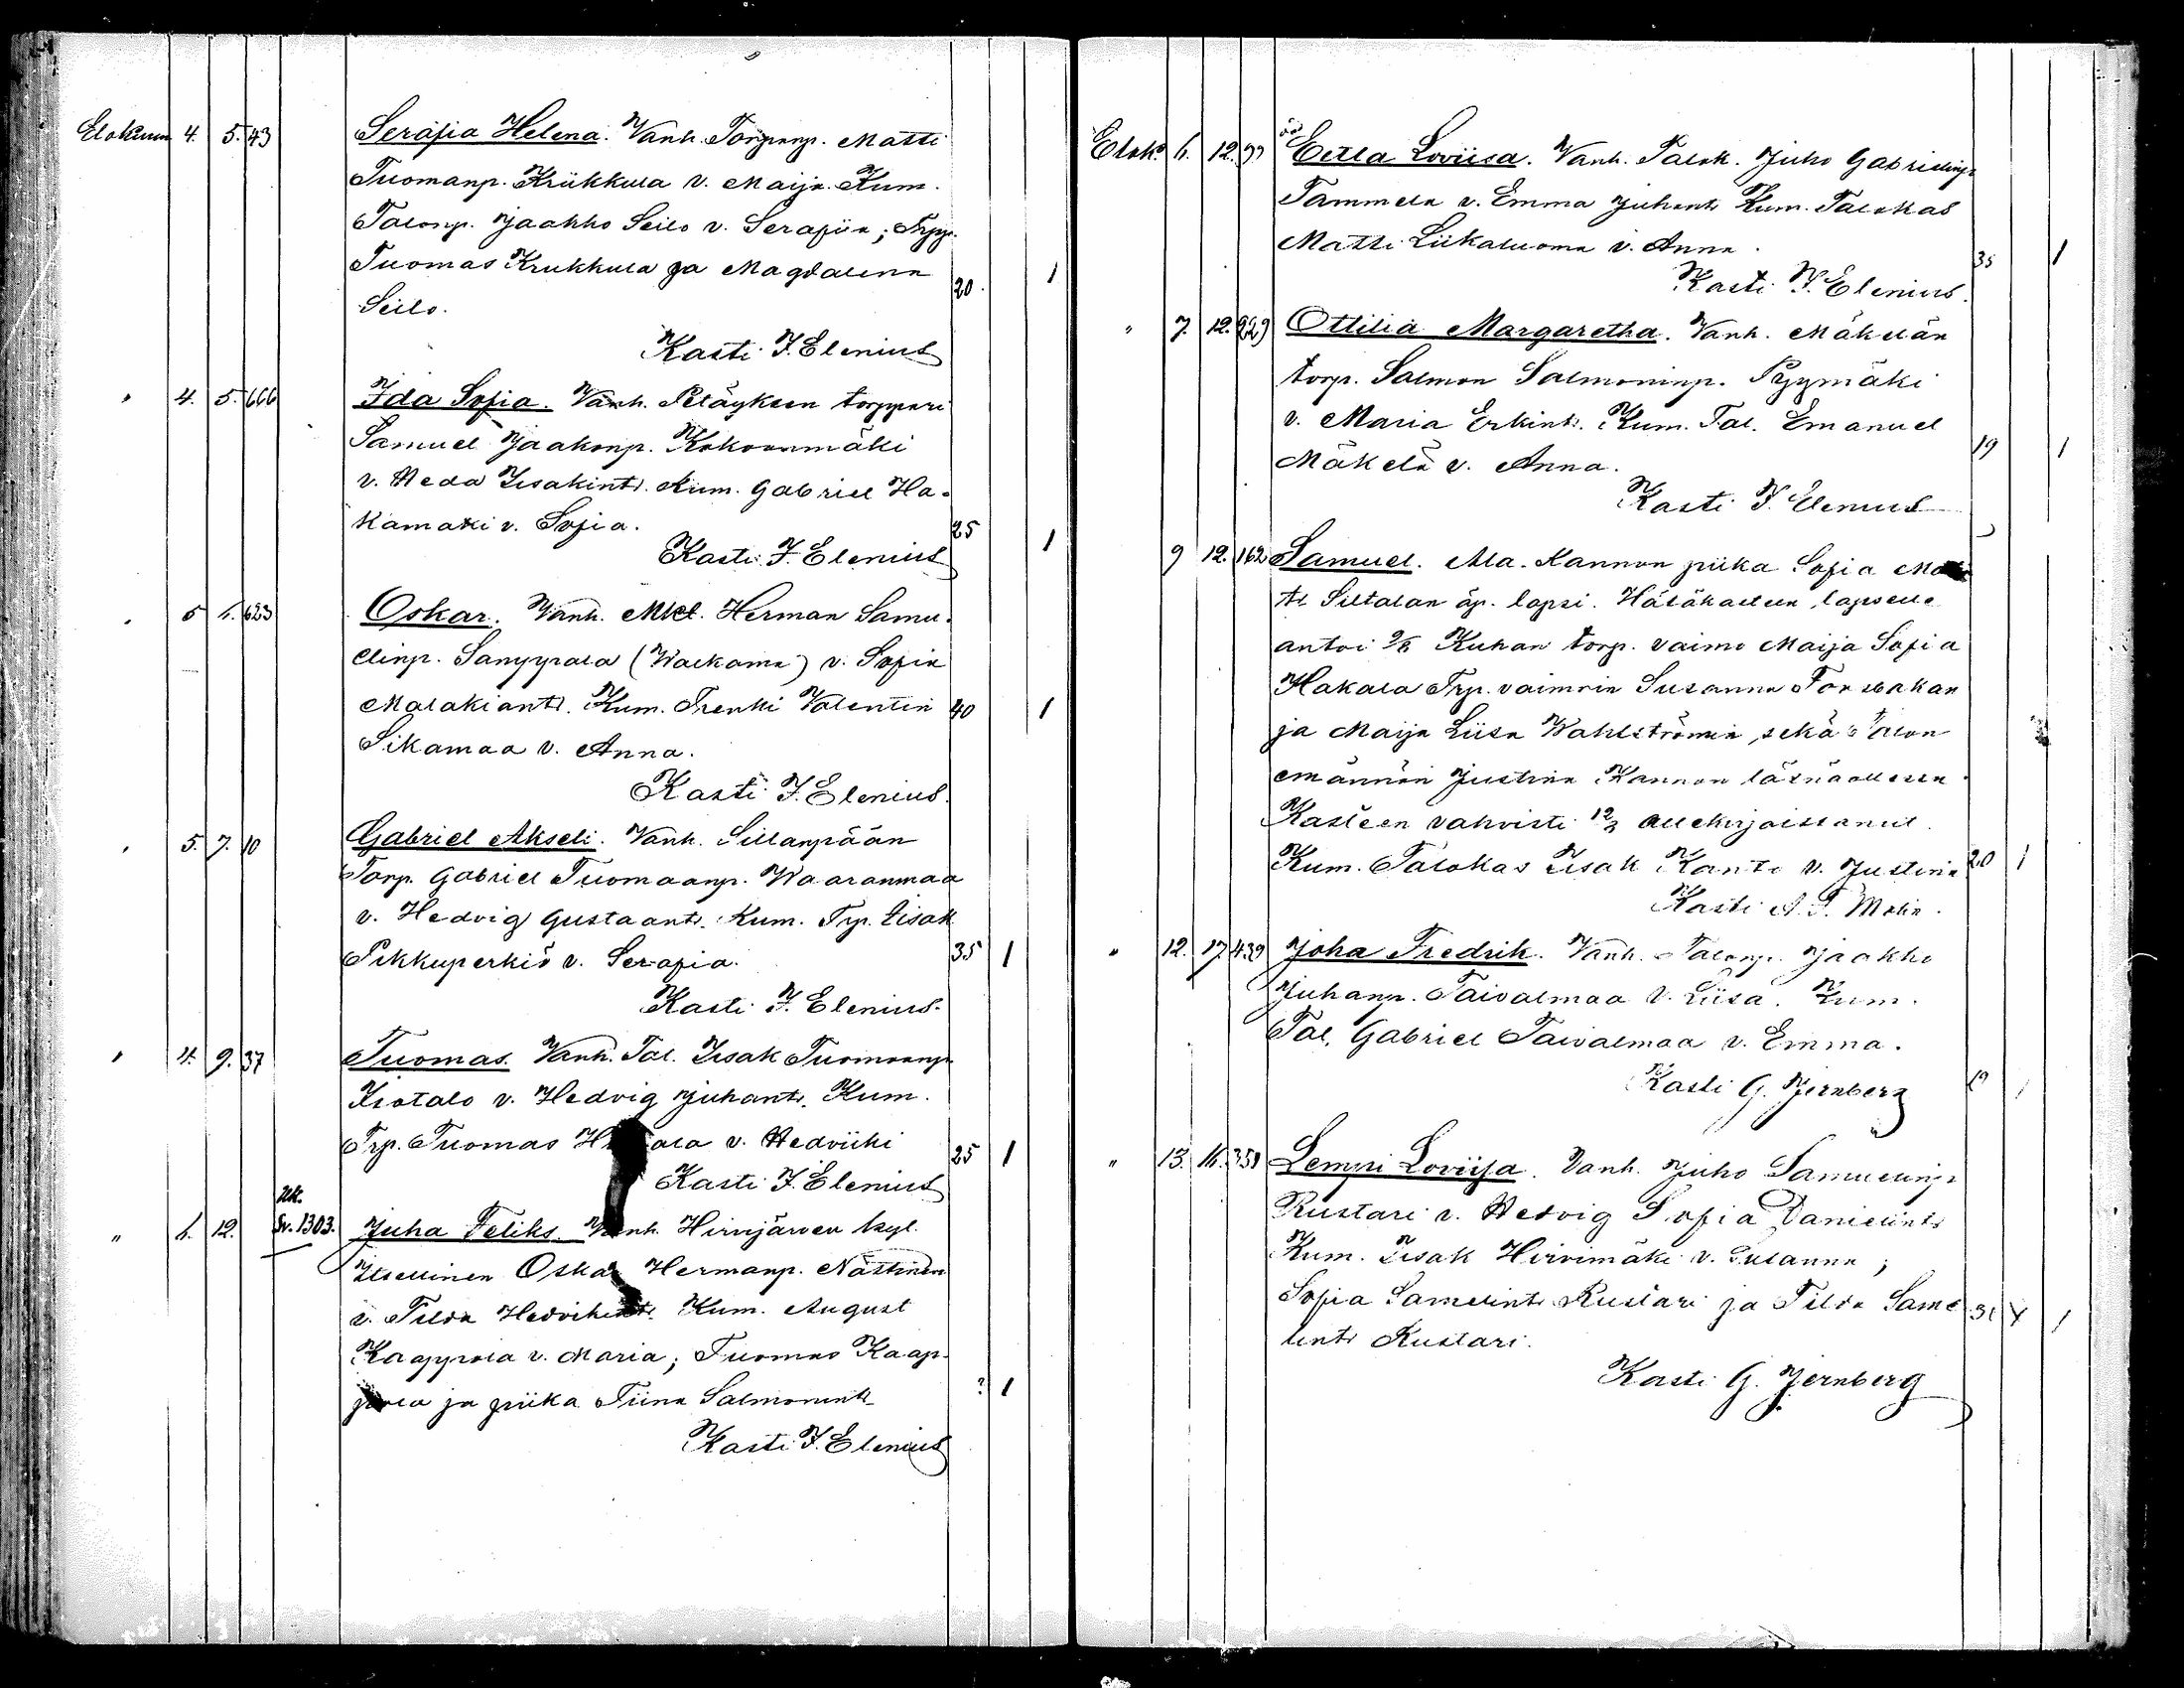 Elokuun 4. 5. 43 Serafia Helena. Vanh. Torpanp. Matti
Tuomanp. Krükkula v. Maija. Kum.
Talonp. Jaakko Seilo v. Serafiia; Trp.
Tuomas Krukkula ja Magdalena 20. 1
Seilo.
Kasti J. Elenius
" 4. 5. 666 Ida Sofia. Vanh. Petäyksen torppari
Samuel Jaakonp. Kokoonmäki
v. Heda Iisakint. Kum. Gabriel Ha-
kamaki v. Sofia. 25 1
Kasti J. Elenius
" 5 6. 623 Oskar. Vanh. Mkl. Herman Samu-
elinp. Sanyppala (Walkama) v. Sofia
Malakiant. Kum. Trenki Valentin 40 1
Sikamaa v. Anna.
Kasti J. Elenius.
" 5. 7. 10 Gabriel Akseli. Vanh. Sillanpään
Torp. Gabriel Tuomaanp. Waaranmaa
v. Hedvig Gustaant. Kum. Trp. Iisak
Pikkuperkiö v. Serafia. 35 1
Kasti J. Elenius.
" 4. 9. 37 Tuomas. Vanh. Tal. Iisak Tuomaanp
Isotalo v. Hedvig Juhant. Kum.
Trp. Tuomas v. Hedviiki 25 1
Kasti J. Elenius
" 6. 12. Uk. Sv. 1303. Juha Feliks. Vanh. Hirvijärven kyl.
Itsellinen Oskar Hermanp. Nästinen
v. Tilda Kum. August
Kaappola v. Maria; Tuomas Kaap-
pola ja piika Tiina Salmonint. ? 1
Kasti J. Elenius
Elok. 6. 12. 99 Eetla Loviisa. Vanh. Talok. Juho Gabrielinp.
Tammela v. Emma Juhant. Kum. Talokas
Matti Liikaluoma v. Anna. 35 1
Kasti J. Elenius.
" 7. 12. 229 Ottilia Margaretha. Vanh. Mäkelän
torp. Salmon Salmoninp. Pyymäki
v. Maria Erkint. Kum. Tal. Emanuel
Mäkelä v. Anna. 19 1
Kasti J. Elenius
9 12. 162 Samuel. Ala-Kannon piika Sofia
tt Siltalan äp. lapsi. Hätäkasteen lapselle
antoi 9/8 Kuhan torp. vaimo Maija Sofia
Hakala Trp. vaimoin Susanna Forsbakan
ja Maija Liisa Wahlströmin, sekä talon
emännän Justina Kannon läsnäollessa.
Kasteen vahvisti 12/8 allekirjoittanut.
Kum. Talokas Iisak Kanto v. Justina 20 1
Kasti A. F. Molin.
" 12. 17 439 Joha Fredrik. Vanh. Talonp. Jaakko
Juhanp. Taivalmaa v. Liisa. Kum.
Tal. Gabriel Taivalmaa v. Emma.
Kasti G. Jernberg 19 1
" 13. 16. 358 Lempi Loviisa. Vanh. Juho Samuelinp
Rustari v. Hedvig Sofia Danielint.
Kum. Iisak Hirvimäki v. Susanna;
Sofia Samelint Rustari ja Tilda Same- 31 1
lint Rustari.
Kasti G. Jernberg